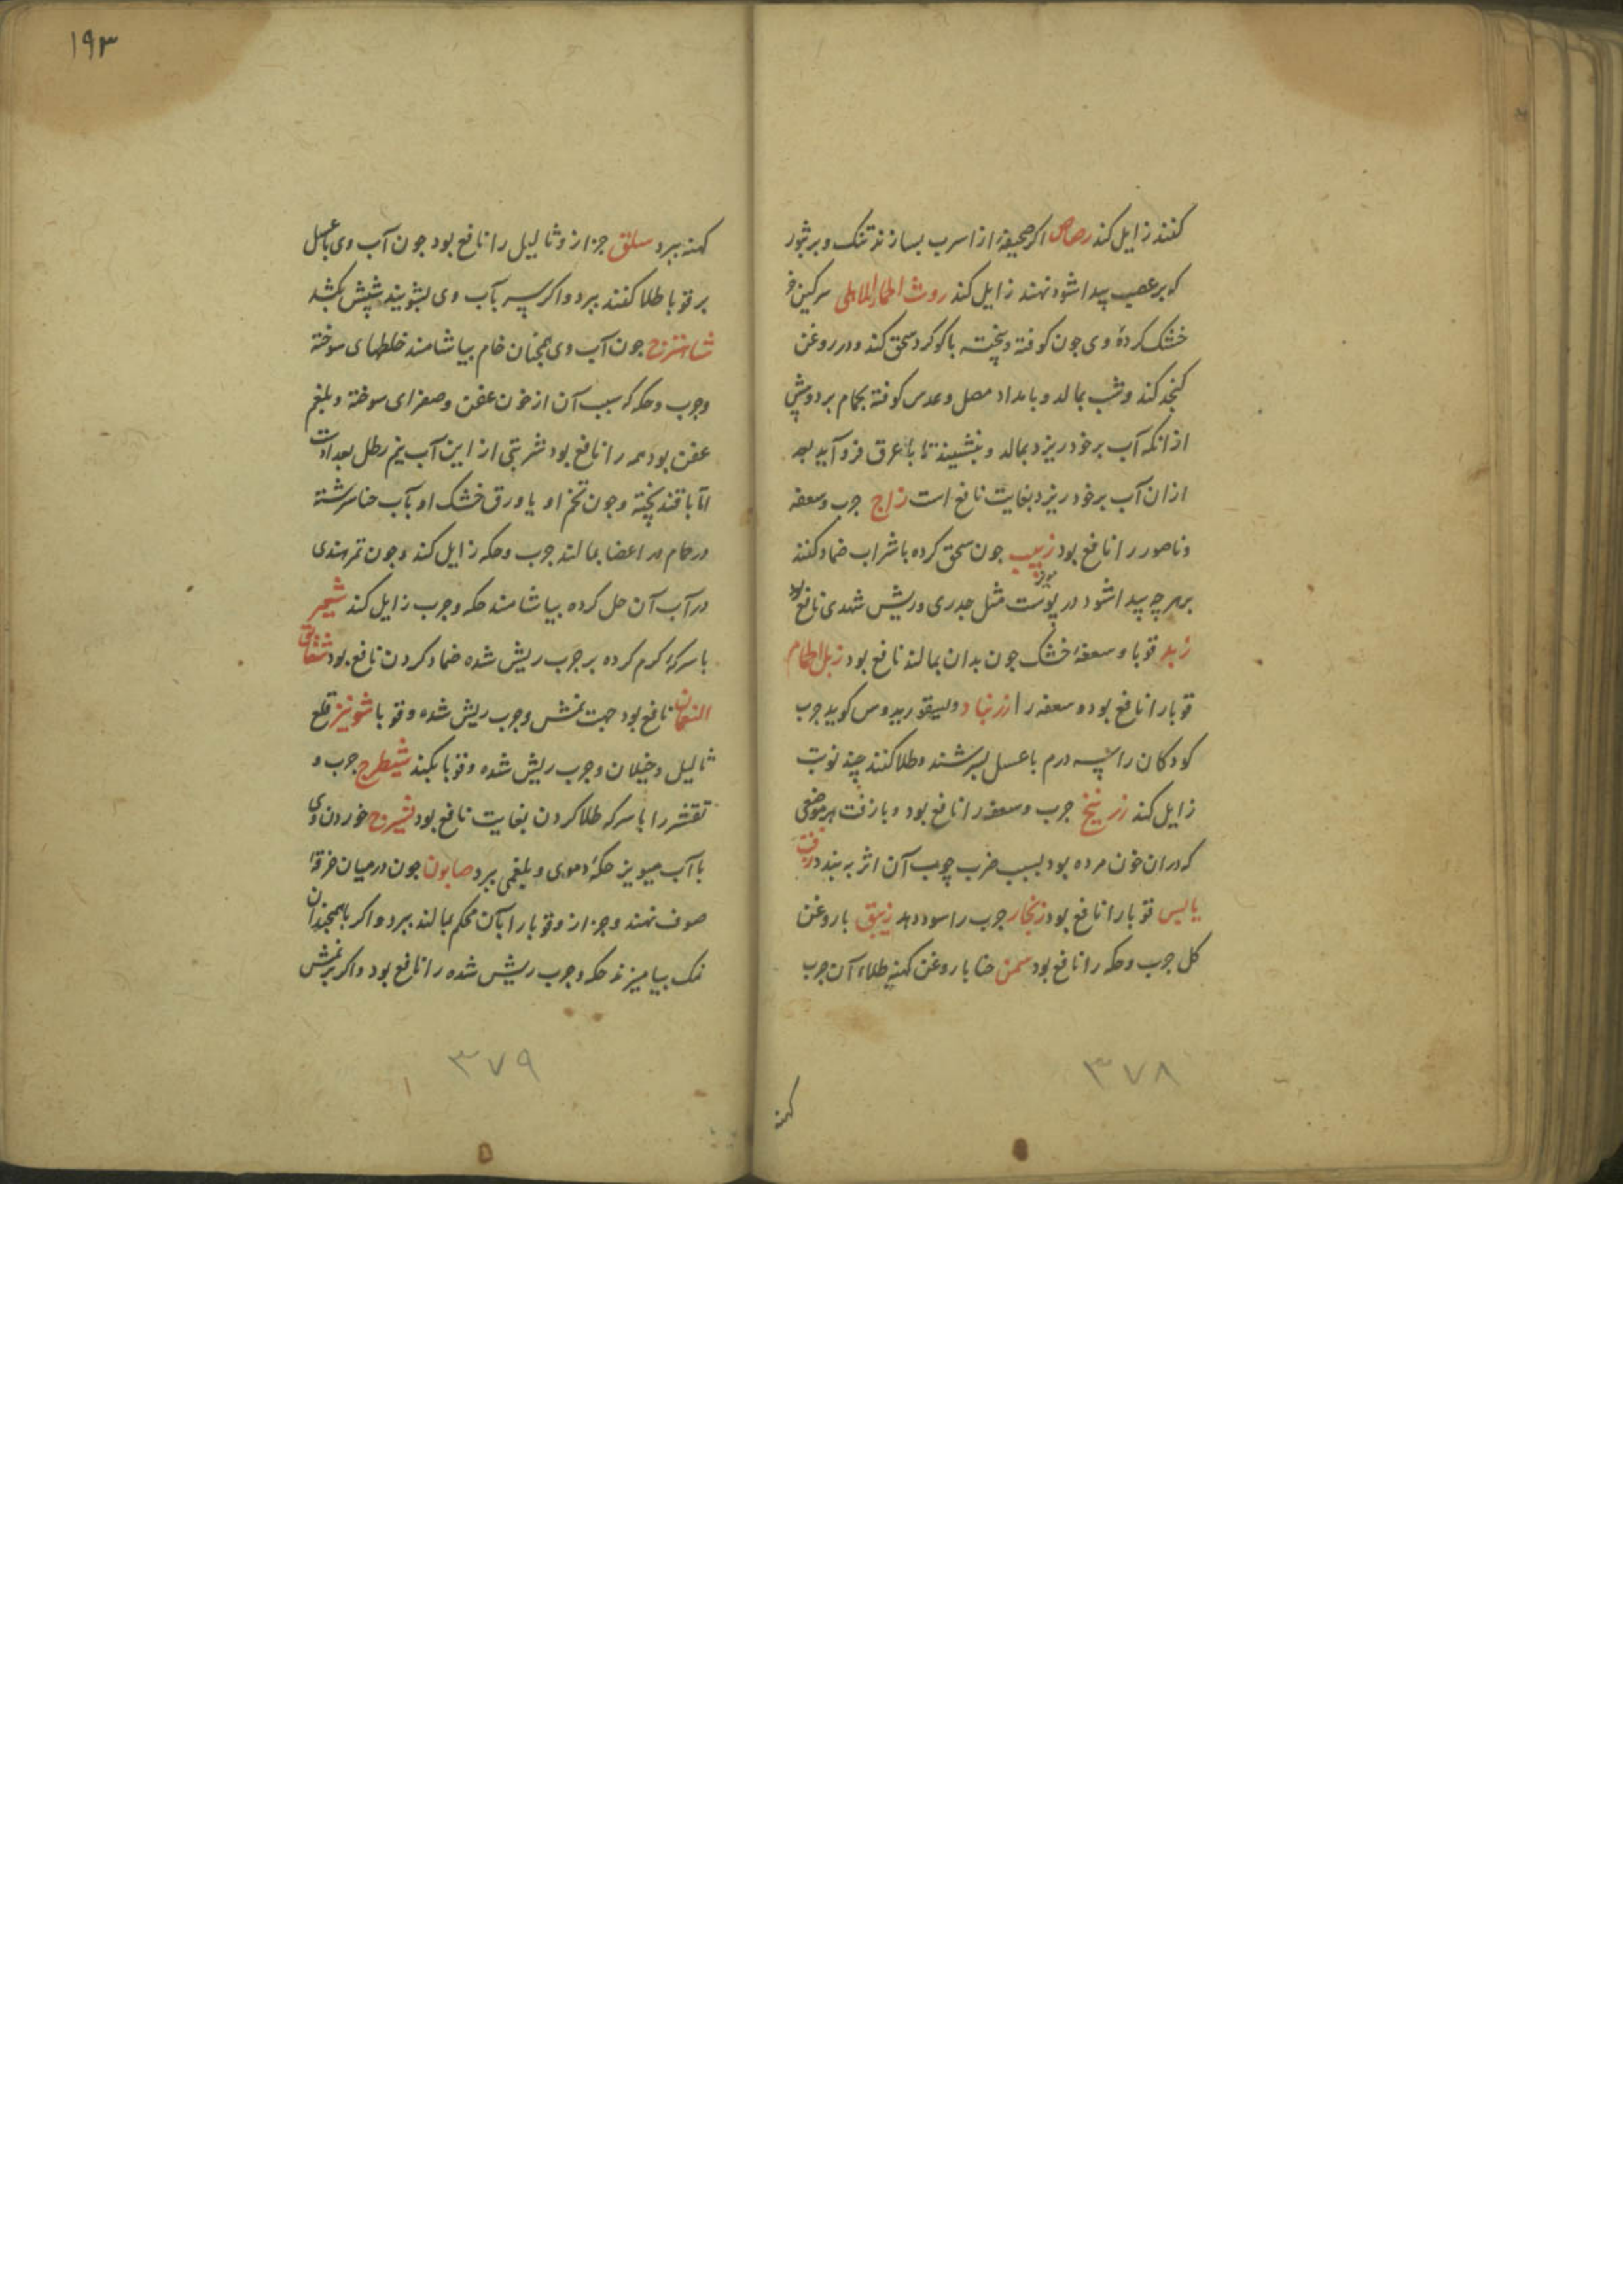 کنند زایل کند رصاص اکر صحیفهٔ از اسرب بسازند تنک و بر بثور
که بر عصب پیدا شود نهند زایل کند روث الحمار الاهلی سرکین خر
خشک کردهٔ وی جون کوفته و پخته با کوکرد سحق کند و در روغن
کنجد کند و شب بمالد و بامداد مصل و عدس کوفته بحمام برد و پیش
از انکه آب بر خود ریزد بمالد و بنشیند تا با عرق فرو آید بعد
ازان آب بر خود ریزد بغایت نافع است زاج جرب و سعفه
و ناصور را نافع بود زبیب جون سحق کرده با شراب ضماد کنند
مویز
بر هر چه پیدا شود در پوست مثل جدری و ریش شهدی نافع بود
زبد قوبا و سعفهٔ خشک جون بدان بمالند نافع بود زبل الحمام
قوبا را نافع بود و سعفه را زرنباد دیسقوریدوس کوید جرب
کودکان را سه درم با عسل بسرشند و طلا کنند چند نوبت
زایل کند زرنیخ جرب و سعفه را نافع بود و با زفت هر موضعی
که دران خون مرده بود بسبب ضرب چوب آن اثر ببرد زفت
یابس قوبا را نافع بود زنجار جرب را سود دهد زیبق با روغن
کل جرب و حکه را نافع بود سمن حنا با روغن کهنه طلاء آن جرب
۳۷۸
کهنه
۱۹۳
کهنه ببرد سلق جزاز و ثالیل را نافع بود جون آب وی با عسل
بر قوبا طلا کنند ببرد و اکر سر بآب وی بشویند شپش بکشد
شاهترج جون آب وی همچنان خام بیاشامند خلطهای سوخته
و جرب و حکه که سبب آن از خون عفن و صفرای سوخته و بلغم
عفن بود همه را نافع بود شربتی از این آب نیم رطل بعد ادت
اما با قند پخته و جون تخم او یا ورق خشک او بآب حنا سرشته
در حمام در اعضا بمالند جرب و حکه زایل کند و جون تمر هندی
در آب آن حل کرده بیاشامند حکه و جرب زایل کند شیح
با سرکهٔ کرم کرده بر جرب ریش شده ضماد کردن نافع بود شقایق
النعمان نافع بود جهت نمش و جرب ریش شده و قوبا شونیز قلع
ثالیل و خیلان و جرب ریش شده و قوبا بکند شیطرج جرب و
تقشر را با سرکه طلا کردن بغایت نافع بود شیرج خوردن وی
با آب میویز حکهٔ دموی و بلغمی ببرد صابون جون در میان خرقهٔ
صوف نهند و جزاز و قوبا را بآن محکم بمالند ببرد و اکر با همچندان
نمک بیامیزند حکه و جرب ریش شده را نافع بود و اکر بر نمش
۳۷۹